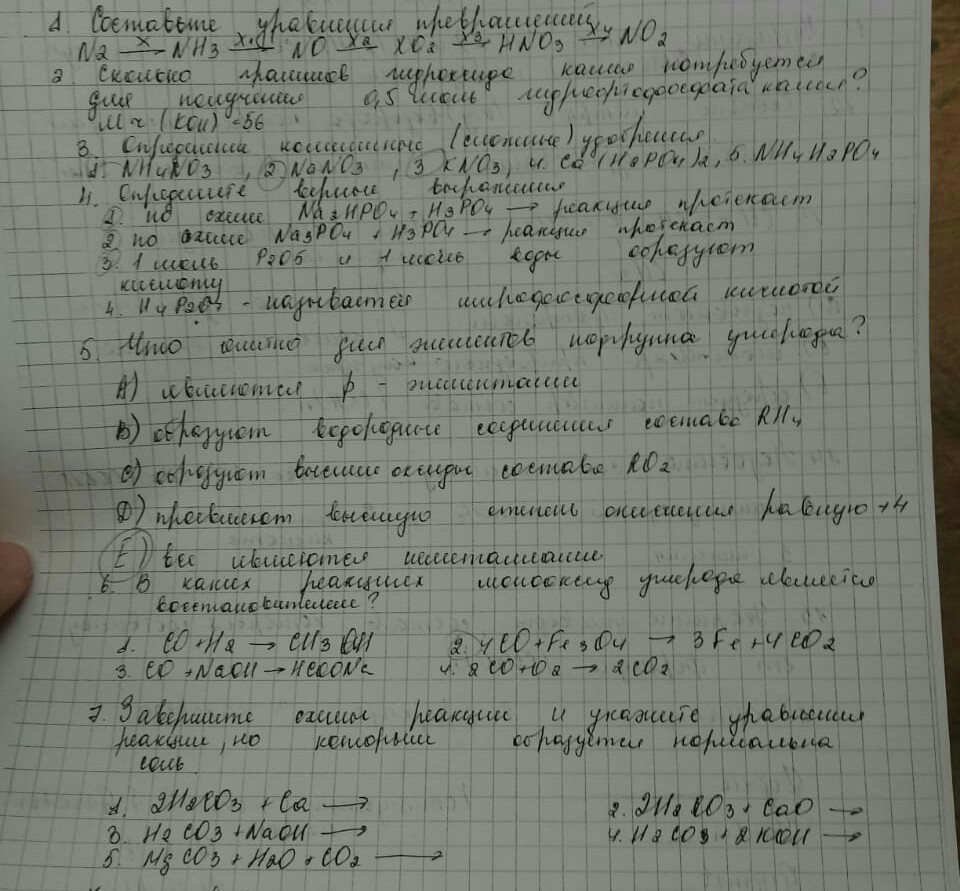 1. Составьте уравнения превращений
N2 X→ NH3 X1→ NO X2→ XO2 X3→ HNO3 X4→ NO2
2. Сколько граммов гидроксида калия потребуется
для получения 0,5 моль гидроортофосфата калия?
Mr (KOH) = 56
3. Определите комплексные (сложные) удобрения
1. NH4NO3, 2 NaNO3, 3 KNO3, 4. Ca(H2PO4)2, 5. NH4H2PO4
4. Определите верные выражения
1. по схеме Na2HPO4 + H3PO4 → реакция протекает
2 по схеме Na3PO4 + H3PO4 → реакция протекает
3. 1 моль P2O5 и 1 моль воды образуют
кислоту
4. H4P2O7 - называется пирофосфорной кислотой
5. Что для элементов подгруппа углерода?
A) являются p - элементами
B) образуют водородные соединения состава RH4
C) образуют высшие оксиды состава RO2
D) проявляют высшую степень окисления равную +4
E) все являются неметаллами
6. В каких реакциях монооксид углерода является
восстановителем?
1. CO + H2 → CH3OH 2. 4CO + Fe3O4 → 3Fe + 4CO2
3. CO + NaOH → HCOONa 4. 2CO + O2 → 2CO2
7. Завершите схемы реакции и укажите уравнения
реакции, по которым образуется нормальна
соль
1. 2H2CO3 + Ca → 2. 2H2CO3 + CaO →
3. H2CO3 + NaOH → 4. H2CO3 + 2KOH →
5. MgCO3 + H2O + CO2 →